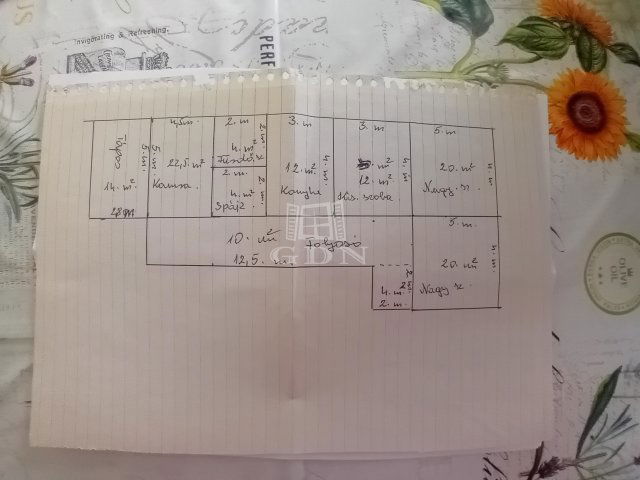 Invigorating & Refreening.
PERF
4,5m.
2. m
3. m
3. m
5. m
5. m.
5. m
22,5. m²
Kamra.
14. m²
2. m
4. m²
Fürdősz
2. m
2. m
4. m²
Spájz
12. m²
Konyha
4. m
12. m²
Kis. szoba
4. m
20. m²
Nagy. sz.
4. m
10. m²
12,5. m.
Folyosó
GDN
4. m²
2. m
5. m
20. m²
Nagy sz.
4. m
OLIVE
OIL